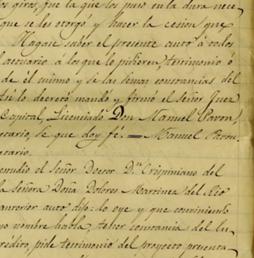 os giros, que la que los puso en la dura nece
que se les otorgó y hacer la cesion que
Hagase saber el presente auto á todos
actuario á los que lo pidieren, testimonio ó
de él mismo y de las demas constancias del
así lo decretó mandó y firmó el Señor Juez
Capital, Licenciado Don Manuel
cario, de que doy fé. — Manuel
cario.
el Señor Doctor Dn. Crispiniano del
la Señora Doña Dolores Martinez del Rio
anterior auto dijo: lo oye y que conviniendo
yo nombre habla, tener constancia del
redito, pide testimonio del proyecto